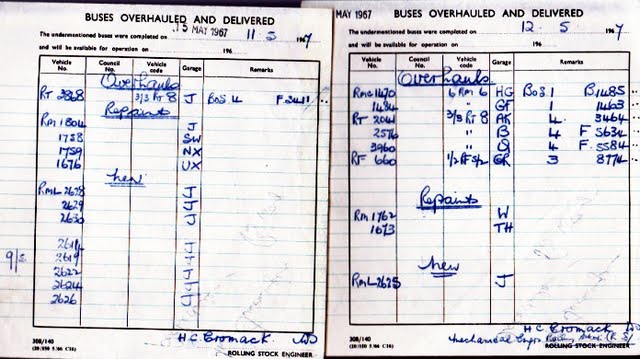 BUSES OVERHAULED AND DELIVERED
15 MAY 1967
The undermentioned buses were completed on 11 5 1967
and will be available for operation on 196
Vehicle No. Council No. Vehicle code Garage Remarks
Overhauls
RT 3868 3/3 RT 8 J BoS 4
Repaints
RM 1804 J
1758 SW
1759 NX
1676 UX
New
RML 2628 J
2629 J
2630 J
2614 J
9/5 2619 J
2622 J
2624 J
2626 J
H.C. Cromack
ROLLING STOCK ENGINEER
308/140
MAY 1967
BUSES OVERHAULED AND DELIVERED
The undermentioned buses were completed on 12. 5 1967
and will be available for operation on 196
Vehicle No. Council No. Vehicle code Garage Remarks
Overhauls
RMC 1470 6 RM 6 HG BoS 1 B1485
1484 " GF 1 1463
RT 2041 3/3 RT 8 AK 4 3464
2576 " B 4 F 5634
3960 " Q 4 F 5584
RF 660 GR 3 8774
Repaints
RM 1762 W
1673 TH
New
RML 2625 J
H.C. Cromack
Mechanical Engr
ROLLING STOCK ENGINEER
308/140